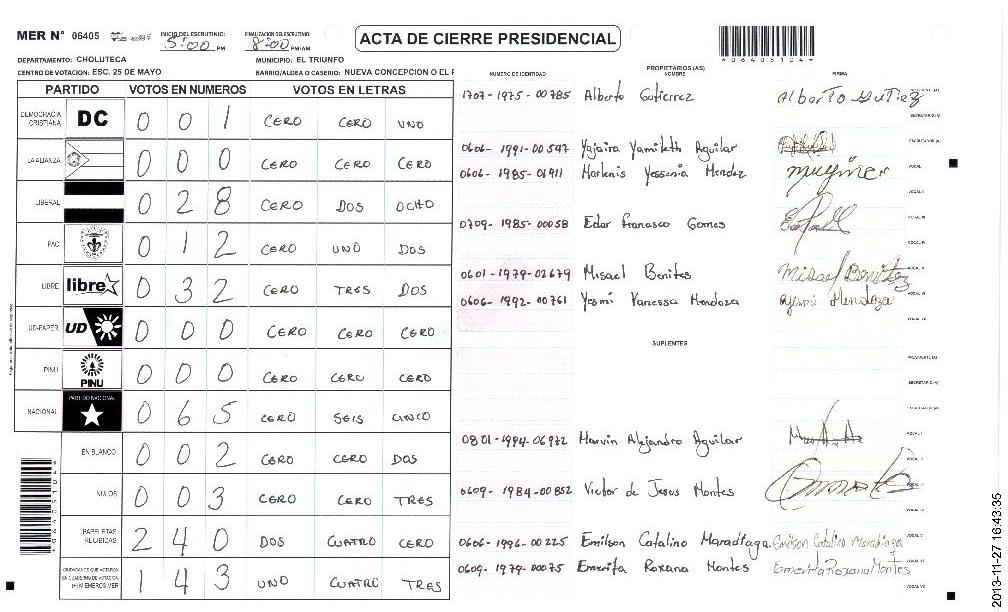 MER N° 06405 INICIO DEL ESCRUTINIO: 5:00 PM FINALIZACIÓN DEL ESCRUTINIO: 8:00 PM/AM
ACTA DE CIERRE PRESIDENCIAL
*06405104*
DEPARTAMENTO: CHOLUTECA MUNICIPIO: EL TRIUNFO
CENTRO DE VOTACION: ESC. 25 DE MAYO BARRIO/ALDEA O CASERIO: NUEVA CONCEPCION O EL F
PARTIDO VOTOS EN NUMEROS VOTOS EN LETRAS
DEMOCRACIA CRISTIANA DC 0 0 1 CERO CERO UNO
LA ALIANZA 0 0 0 CERO CERO CERO
LIBERAL 0 2 8 CERO DOS OCHO
PAC 0 1 2 CERO UNO DOS
LIBRE libre 0 3 2 CERO TRES DOS
UD-FAPER UD 0 0 0 CERO CERO CERO
PINU PINU 0 0 0 CERO CERO CERO
NACIONAL PARTIDO NACIONAL 0 6 5 CERO SEIS CINCO
EN BLANCO 0 0 2 CERO CERO DOS
NULOS 0 0 3 CERO CERO TRES
PAPELETAS RECIBIDAS 2 4 0 DOS CUATRO CERO
CIUDADANOS QUE VOTARON EN CUADERNO DE VOTACION (+) MIEMBROS MER 1 4 3 UNO CUATRO TRES
PROPIETARIOS (AS)
NUMERO DE IDENTIDAD NOMBRE FIRMA
1707-1975-00785 Alberto Gutierrez Alberto Gutiez
SECRETARIO (A)
0606-1991-00597 Ygjaira Yamileth Aguilar ESCRUTADOR (A)
0606-1985-01911 Marlenis Yessenia Mendez VOCAL I
VOCAL II
0709-1985-00058 Edar Fransasco Gomes VOCAL III
VOCAL IV
0601-1979-02679 Misael Benites Misael Benitez
0606-1992-00761 Yesmi Vanessa Mendoza Yesmi Mendoza
VOCAL VII
SUPLENTES
PRESIDENTE (A)
SECRETARIO (A)
0801-1984-06972 Marvin Alejandro Aguilar VOCAL I
VOCAL II
0609-1984-00852 Victor de Jesus Montes
VOCAL IV
0606-1996-00225 Emilson Catalino Maradiaga Emilson Catalino Maradiaga VOCAL V
0609-1979-00075 Emerita Roxana Montes Emerita Roxana Montes
VOCAL VII
2013-11-27 16:43:35